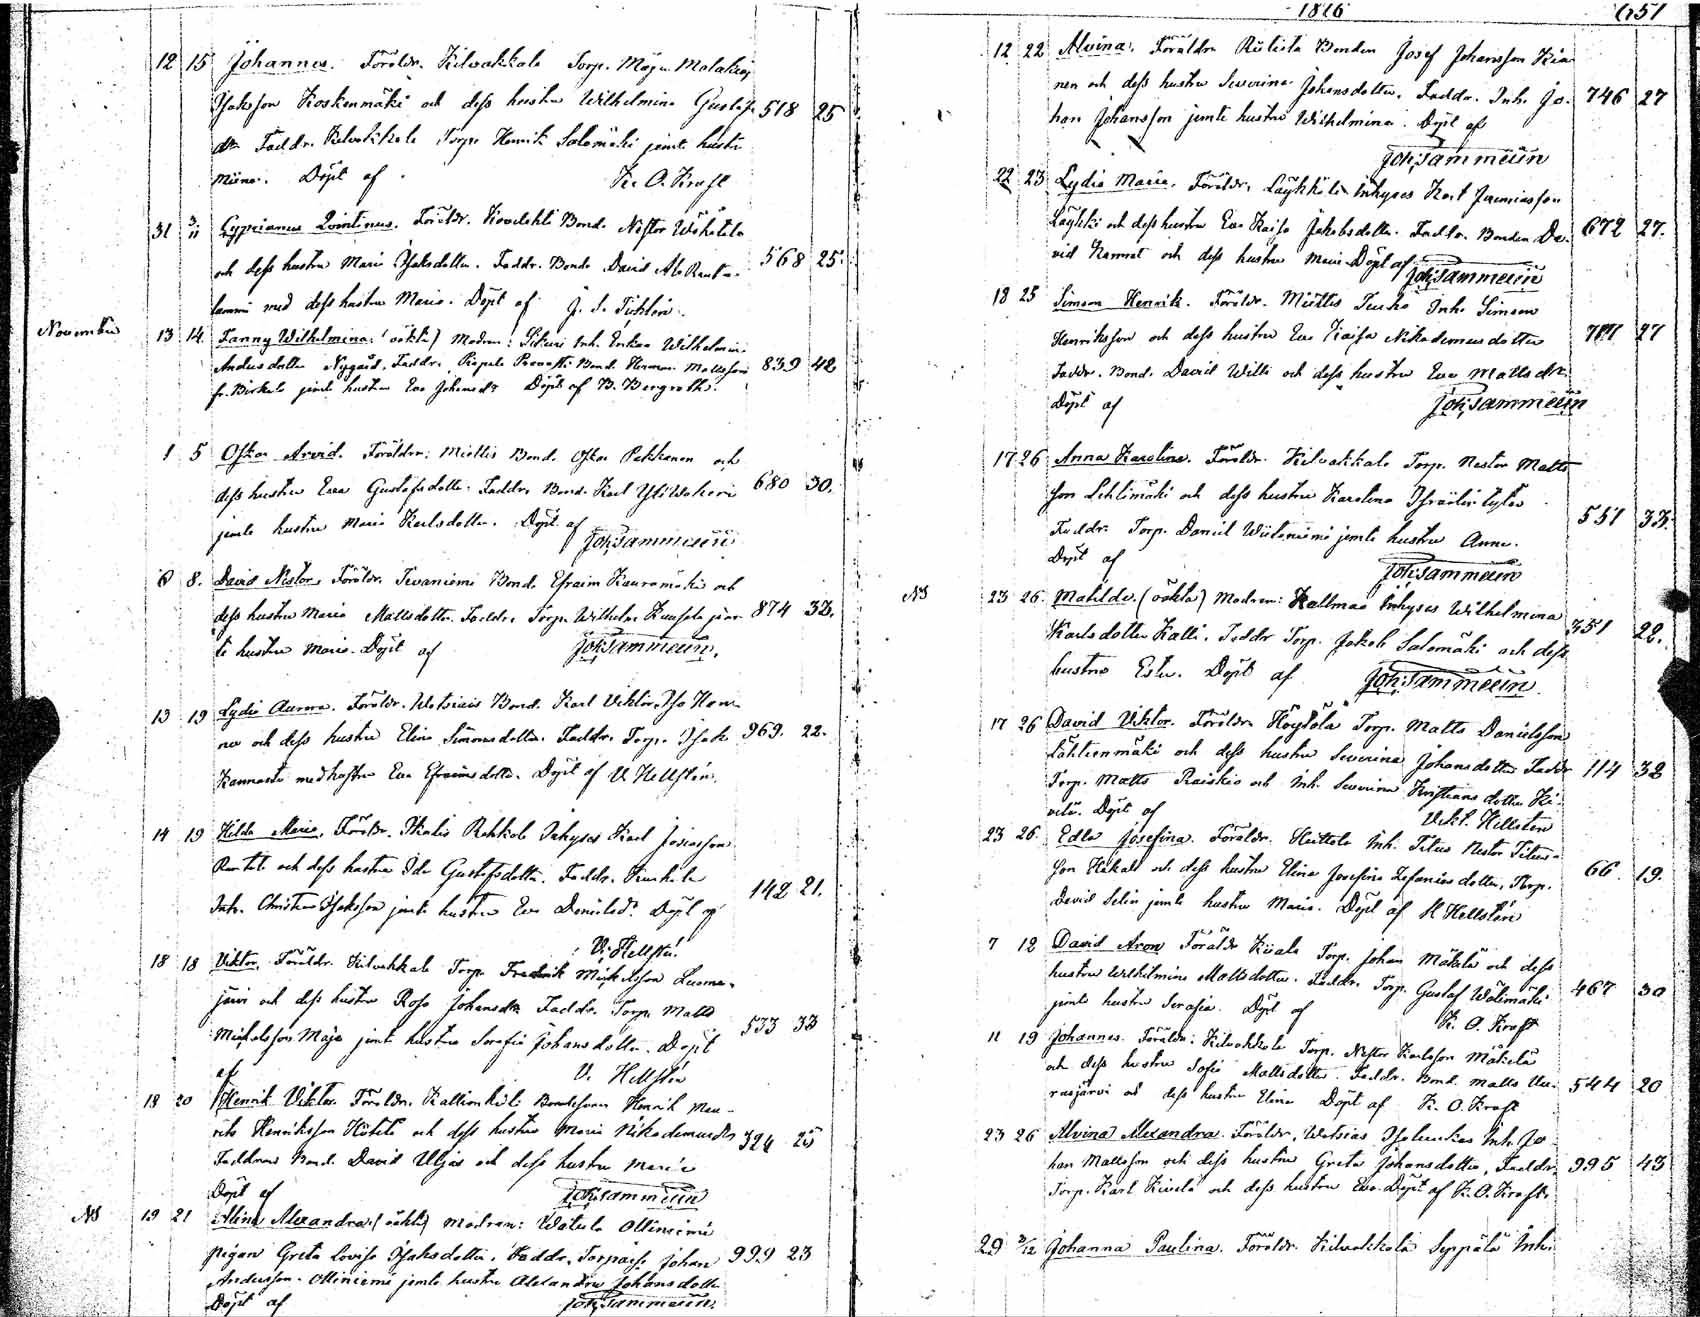 12 15 Johannes. Föräldr. Kilvakkala Torp. Maja Malakias
Isaksson Koskenmäki och dess hustru Wilhelmina Gustafs 518 25
dr. Faddr. Kilvakkala Torp. Henrik Salomäki jemte hustru
Miina. Döpt af K. O. Kraft
31 3/11 Cyprianus Quintinus. Föräldr. Kovelahti Bond. Nestor
och dess hustru Maria Isaksdotter. Faddr. Bond. David Ala Ranta- 568 25.
lammi med dess hustru Maria. Döpt af J. S.
November 13 14. Fanny Wilhelmina (oäkta) Modren: Sikuri Inh. Enkan Wilhelmina
Andersdotter Nygård, Faddr. Bond. Herman Mattsson 839 42
fr. Birkala jemte hustru Eva Johansdr Döpt af B. Bergroth.
1 5 Oskar Arvid. Föräldrar: Miettis Bond. Oskar Pekkanen och
dess hustru Eva Gustafsdotter. Faddr. Bond. Karl 680 30.
jemte hustru Maria Karlsdotter. Döpt af
Joh. Sammelin
6 8. David Nestor. Föräldr. Tevaniemi Bond. Efraim Kauramäki och
dess hustru Maria Mattsdotter. Faddr. Torp. Wilhelm jem- 874 33.
te hustru Maria. Döpt af Joh. Sammelin.
13 19 Lydia Aurora. Föräldr. Watsiais Bond. Karl Viktor Iso Han-
no och dess hustru Elina Simonsdotter. Faddr. Torp. Isak 969. 22.
Kannasto med hustru Eva Efraimsdotter. Döpt af V. Hellstén.
14 19 Hilda Maria. Föräldr. Ikalis Rahkola Inhyses Karl Josiasson
Rantala och dess hustru Ida Gustafsdotter. Faddr. 142 21.
Inh. Christian Isaksson jemte hustru Eva Danielsd. Döpt af
V. Hellstén.
18 18 Viktor. Föräldr. Kilvakkala Torp. Fredrik Mickelsson Luoma-
järvi och dess hustru Rosa Johansdr. Faddr. Torp. Matts
Michelsson Maja jemte hustru Serafia Johansdotter. Döpt 533 33
af V. Hellstén
18 20 Henrik Viktor. Föräldr. Kallionkieli Bondesonen Henrik Mau-
rits Henriksson och dess hustru Maria Nikodemusdr 324 25
Faddrar Bond. David Uljas och dess hustru Maria
Döpt af Joh. Sammelin
NB 19 21 Alina Alexandra. (oäkta) Modren: Watula Olliniemi
pigan Greta Lovisa Isaksdotter. Faddr. Torpare Johan 999 23
Andersson Olliniemi jemte hustru Alexandra Johansdotter
Döpt af Joh. Sammelin.
1876 651
12 22 Alvina. Föräldrar Riitiala Bonden Josef Johansson Kia-
nen och dess hustru Severina Johansdotter. Faddr. Inh. Jo- 746 27
han Johansson jemte hustru Wilhelmina. Döpt af
Joh. Sammelin
22 23 Lydia Maria. Föräldr. Inhyses Karl Jeremiasson
och dess hustru Eva Kaisa Jakobsdotter. Faddr. Bonden Da- 672 27.
vid och dess hustru Maria. Döpt af Joh. Sammelin
18 25 Simson Henrik. Föräldr. Miettis Inh. Simson
Henriksson och dess hustru Eva Kaisa Nikodemusdotter 27
Faddr. Bond. David Wilti och dess hustru Eva Mattsdr.
Döpt af Joh. Sammelin
17 26 Anna Karolina. Föräldr. Kilvakkala Torp. Nestor Matts-
son Lehtimäki och dess hustru Karolina
Faddr. Torp. Daniel jemte hustru Anna. 551 33.
Döpt af Joh. Sammelin
NB 23 26. Matilda. (oäkta) Modren: Kallmaa Inhyses Wilhelmina
Karlsdotter Kalli. Faddr Torp. Jakob Salomäki och dess 351 22.
hustru Ester. Döpt af Joh. Sammelin.
17 26 David Viktor. Föräldr. Höytölä Torp. Matts Danielsson
Lähteenmäki och dess hustru Severina Johansdotter Faddr 114 32
Torp. Matts Raiskio och Inh. Severina Kristiansdotter Ki-
vilä. Döpt af Vikt. Hellsten
23 26. Edla Josefina. Föräldr. Heittola Inh. Titus Nestor Titus-
son Hakala och dess hustru Elina Josefina Zefaniasdotter, Torp. 66. 19.
David Selin jemte hustru Maria. Döpt af V. Hellstén
7 12 David Aron Föräldr Kiiala Torp. Johan Mäkelä och dess
hustru Wilhelmina Mattsdotter. Faddr. Torp. Gustaf Wälimäki 467 30
jemte hustru Serafia. Döpt af K. O. Kraft
11 19 Johannes. Föräldr: Kilvakkala Torp. Nestor Karlsson Mäkelä
och dess hustru Sofia Mattsdotter. Faddr. Bond. Matts Uu-
rasjärvi och dess hustru Elina Döpt af K. O. Kraft 544 20
23 26 Alvina Alexandra. Föräldr. Watsias Inh. Jo-
han Mattsson och dess hustru Greta Johansdotter, Faddr. 995 43
Torp. Karl Kivelä och dess hustru Eva. Döpt af K. O. Kraft.
29 3/12 Johanna Paulina. Föräldr. Kilvakkala Seppälä Inh.